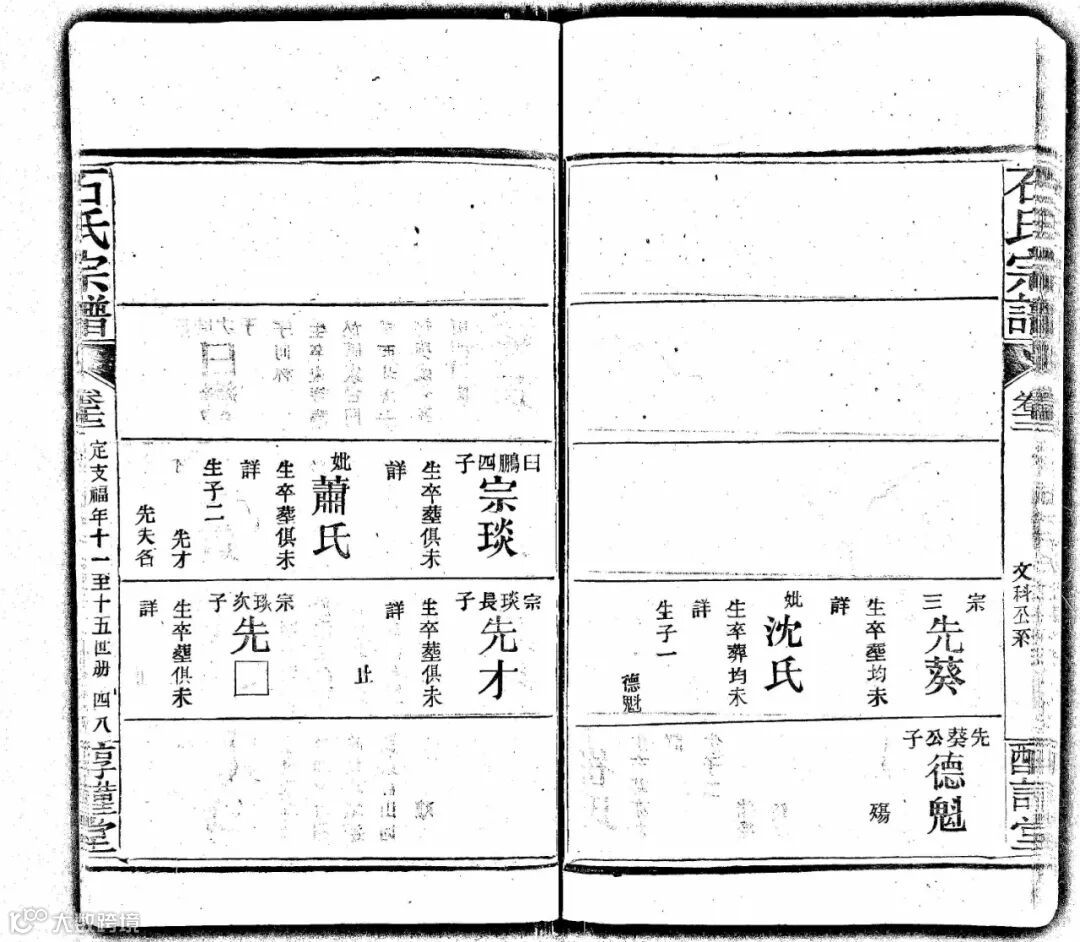 石氏宗譜
文科公系
宗三
先葵
生卒塟均未
詳
妣
沈氏
生卒葬均未
詳
生子一
德魁
先葵公子
德魁
殤
曰鵬四子
宗琰
生卒塟俱未
詳
妣
蕭氏
生卒塟俱未
詳
生子二
先才
先夫名
宗琰長子
先才
生卒塟俱未
詳
止
宗琰次子
先□
生卒塟俱未
詳
石氏宗譜
卷三
定支福年十一至十五四册 四八
大数跨境